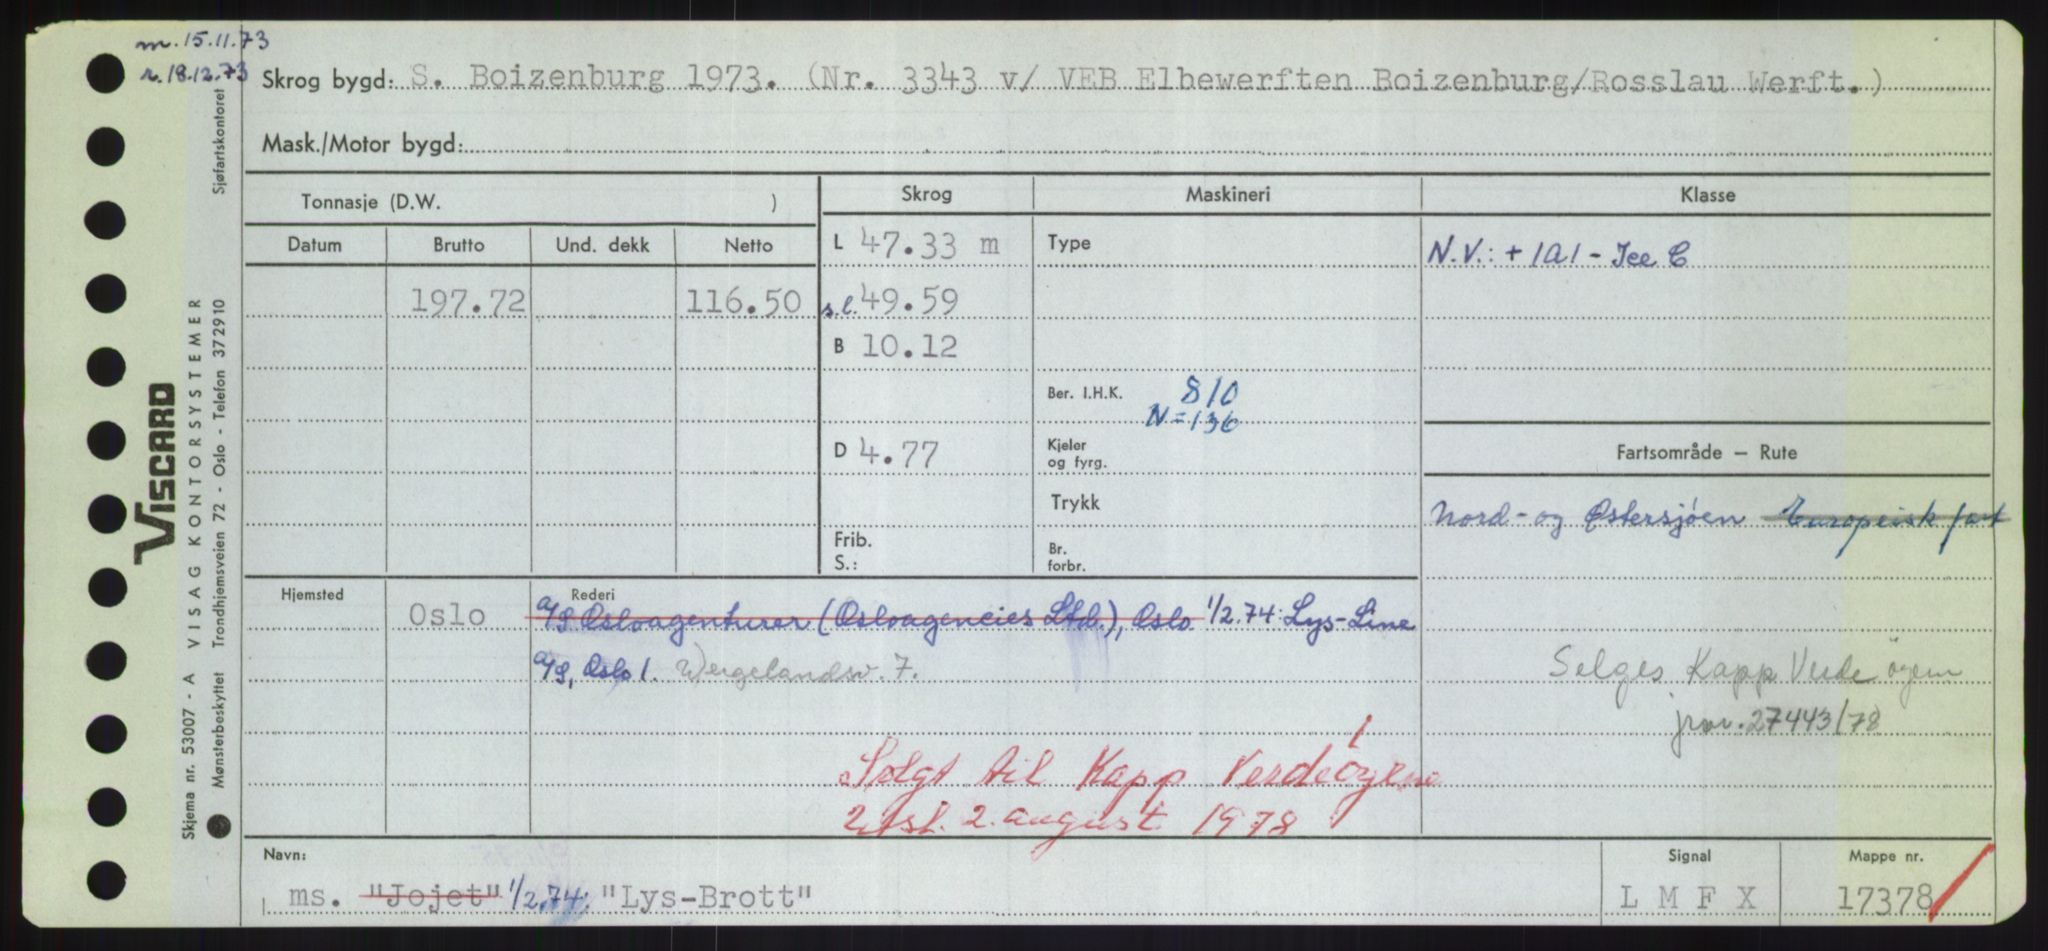 m. 15.11.73
r. 18.12.73
Skrog bygd: S. Boizenburg 1973. (Nr. 3343 v/ VEB Elbewerften Boizenburg/Rosslau Werft.)
Mask./Motor bygd:
Tonnasje (D.W. )
Skrog
Maskineri
Klasse
Datum
Brutto
Und. dekk
Netto
L 47.33 m
Type
N.V.: + 1A1 - Ice C
197.72
116.50
s.l. 49.59
B 10.12
Ber. I.H.K. 810
N=136
D 4.77
Kjeler
og fyrg.
Fartsområde – Rute
Trykk
Nord- og Østersjøen Europeisk fart
Frib.
S.:
Br.
forbr.
Hjemsted
Oslo
Rederi
A/S Osloagenturer (Osloagencies Ltd.), Oslo 1/2.74: Lys-Line
A/S, Oslo 1. Wergelandsv. 7.
Selges Kapp Verde øyene
jnr. 27443/78
Solgt til Kapp Verdeøyene
Utsl. 2. august 1978
Navn:
ms. "Jojet" 1/2.74: "Lys-Brott"
Signal
L M F X
Mappe nr.
17378
VISCARD
VISAG KONTORSYSTEMER
Trondhjemsveien 72 - Oslo - Telefon 372910
Sjøfartskontoret
Skjema nr. 53007 - A
Mønsterbeskyttet